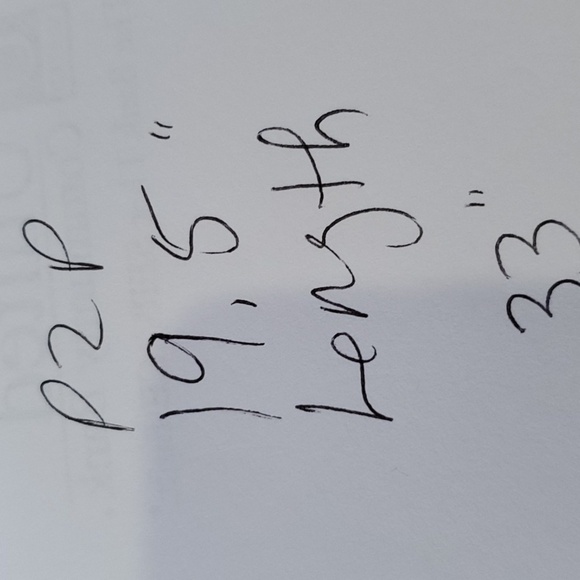 P2P
19,5"
Length
33"